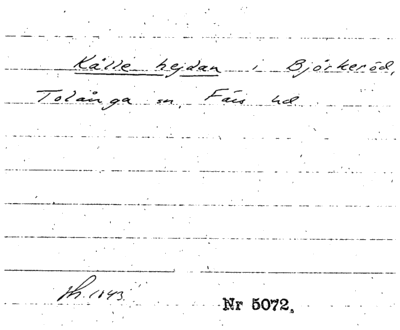 Kålle hejdan i Björkeröd,
Tolånga sn, Färs hd
1843.
Nr 5072.